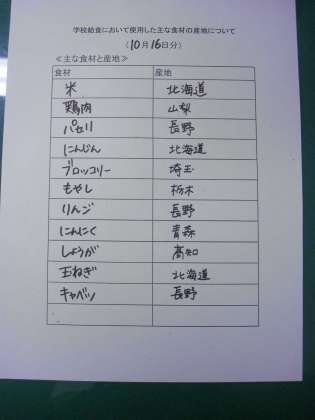 学校給食において使用した主な食材の産地について
(10月16日分)
≪主な食材と産地≫
食材 産地
米 北海道
鶏肉 山梨
パセリ 長野
にんじん 北海道
ブロッコリー 埼玉
もやし 栃木
りんご 長野
にんにく 青森
しょうが 高知
玉ねぎ 北海道
キャベツ 長野